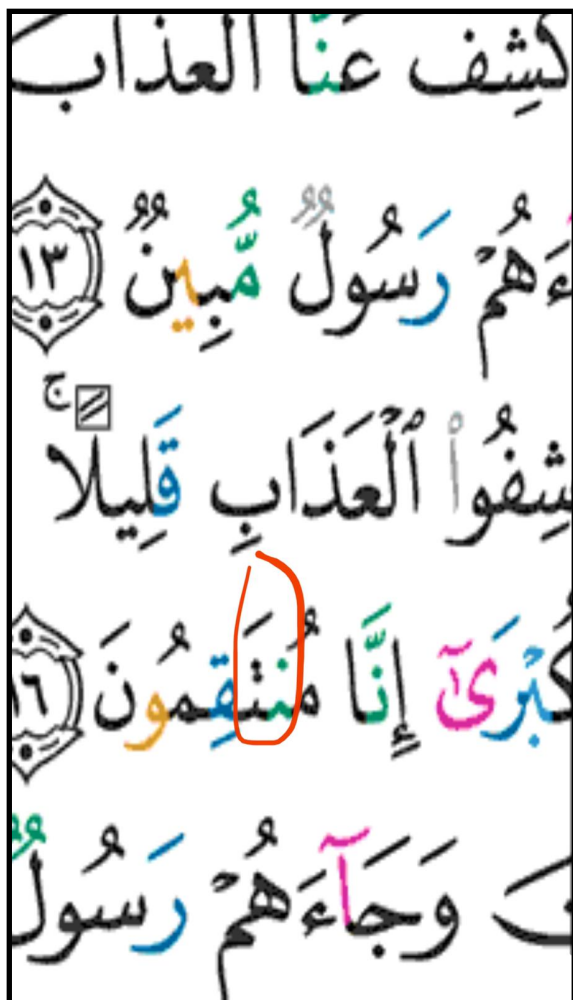 كَشِف عَنَّا ٱلْعَذَابَ
ءَهُمْ رَسُولٌ مُّبِينٌ ١٣
شِفُوا۟ ٱلْعَذَابِ قَلِيلًا ۖ ج
كُبْرَىٰٓ إِنَّا مُنتَقِمُونَ ١٦
وَجَآءَهُمْ رَسُولٌ